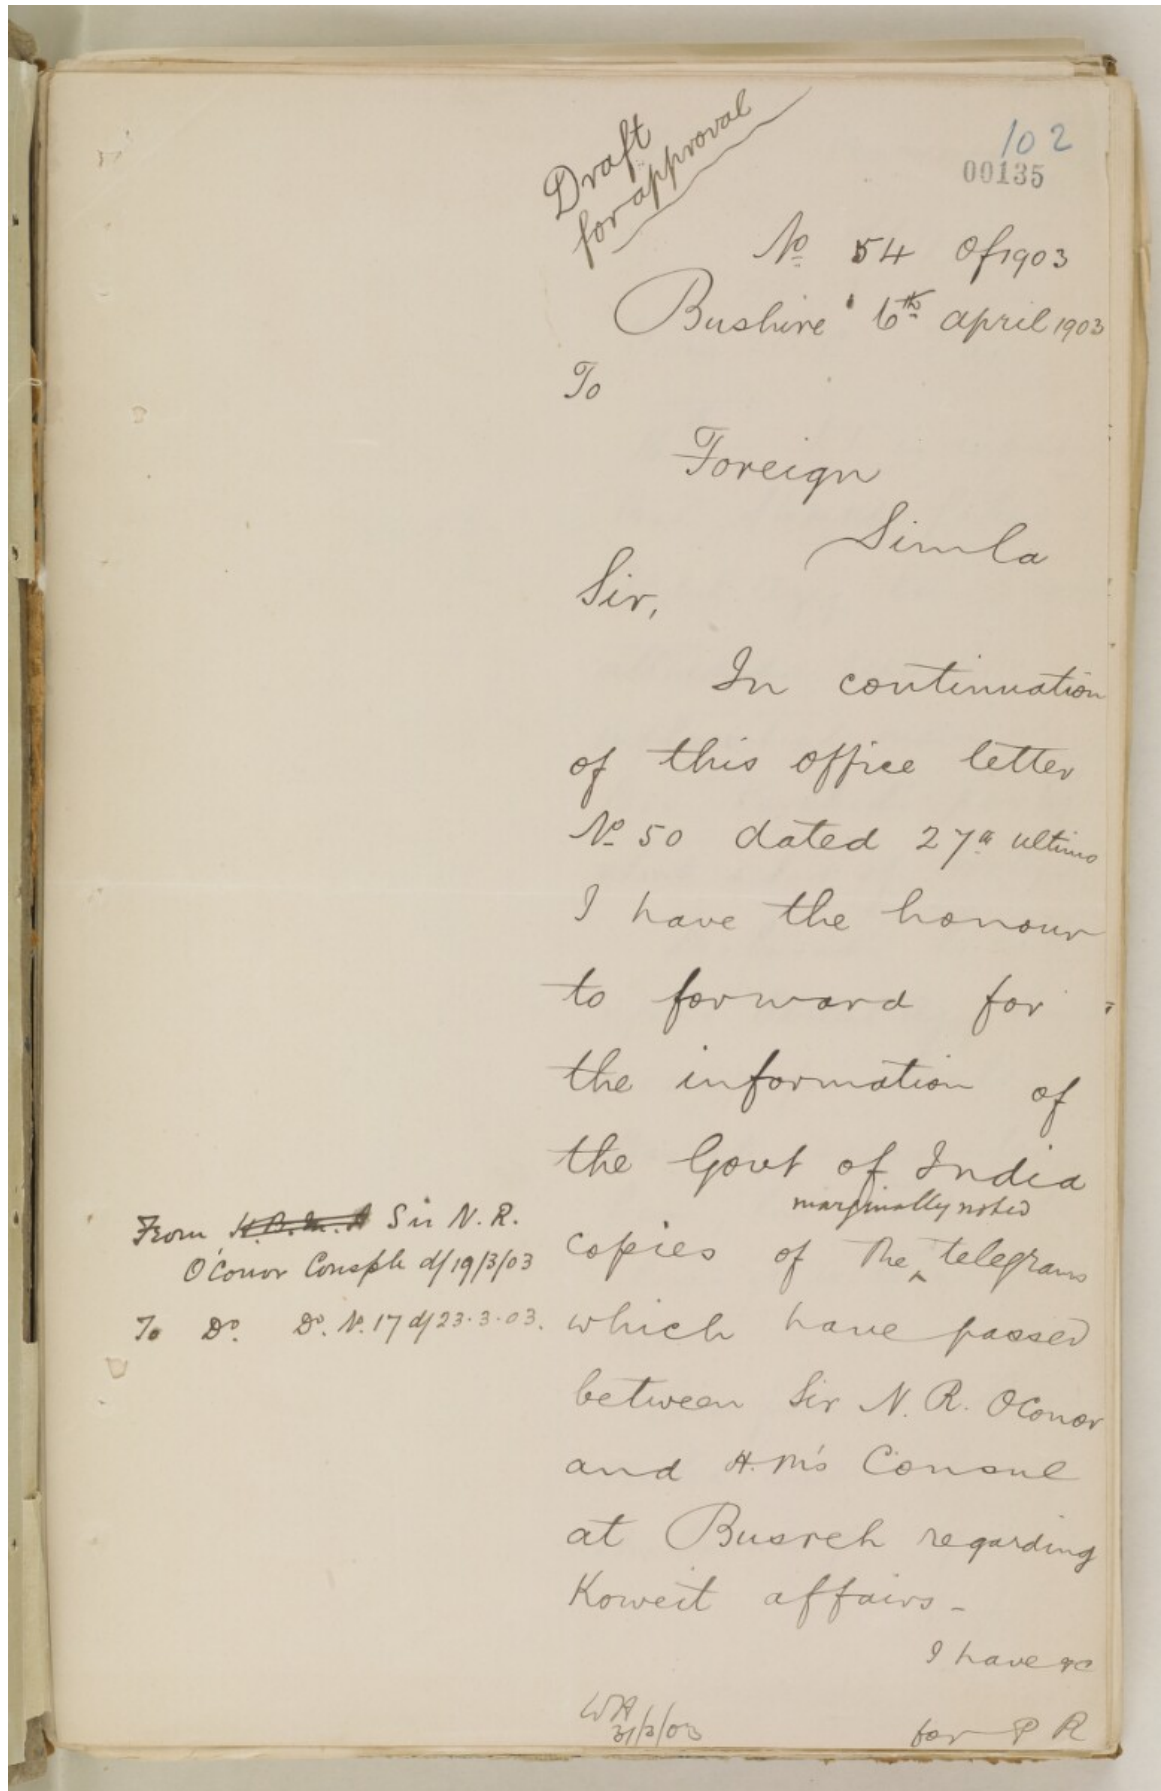 Draft
for approval
102
00135
No 54 Of 1903
Bushire 6th april 1903
To
Foreign
Simla
Sir,
In continuation
of this office letter
No 50 dated 27th ultimo
I have the honour
to forward for
the information of
the Govt of India
marginally noted
copies of the ‸ telegrams
which have passed
between Sir N. R. OConor
and H.M's Consul
at Busreh regarding
Koweit affairs -
I have &c
for P R
WA
31/3/03
From H.B.M.A Sir N. R.
O'Conor Consple d/19/3/03
To Do. Do. No. 17 d/23.3.03.